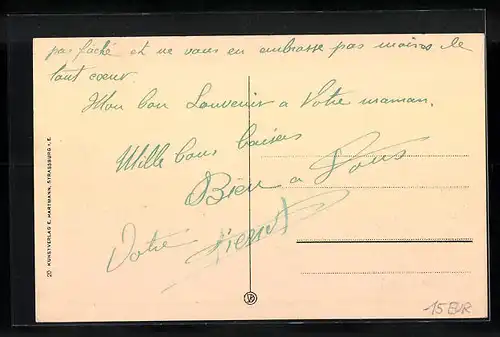 pas fâché et ne vous en embrasse pas moins de
tout cœur.
Mon bon Souvenir a Votre maman.
Mille bons baisers
Bien a Vous
Votre
20 KUNSTVERLAG E. HARTMANN, STRASSBURG i. E.
-15 EUR